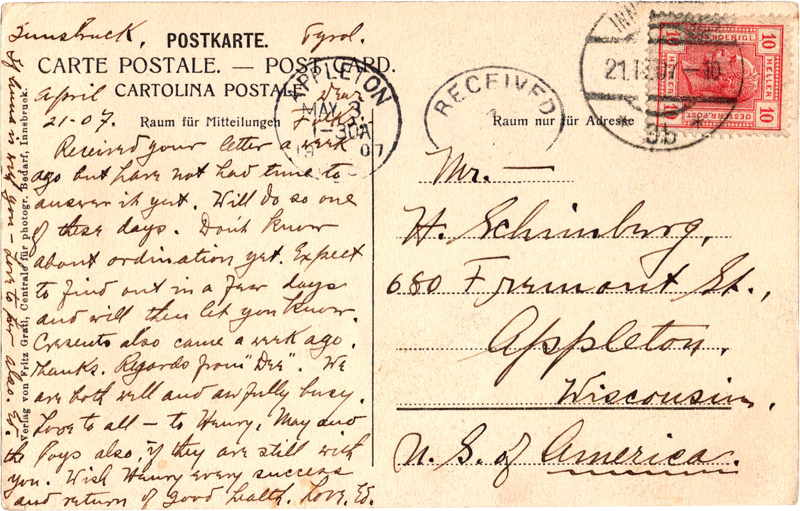 Innsbruck, Tyrol.
POSTKARTE.
CARTE POSTALE. — POST CARD.
CARTOLINA POSTALE
April
21-07.
Dear
Folks,
Raum für Mitteilungen
Received your letter a week
ago but have not had time to
answer it yet. Will do so one
of these days. Don't know
about ordination yet. Expect
to find out in a few days
and will then let you know.
Cresents also came a week ago.
Thanks. Regards from "Dee". We
are both well and awfully busy.
Love to all — to Henry, May and
the boys also, if they are still with
you. Wish Henry every success
and return of good health. Love, Ed.
If Anna is with you — love to her also. Ed.
Verlag von Fritz Gratl, Centrale für photogr. Bedarf, Innsbruck.
APPLETON
MAY 3
1-30A
1907
RECEIVED
INN
21.IV.07-10
* 9b *
10 10
HELLER HELLER
10 10
OESTERR.POST
Raum nur für Adresse
Mr. —
H. Schinburg,
680 Fremont St.,
Appleton,
Wisconsin,
U. S. of America.